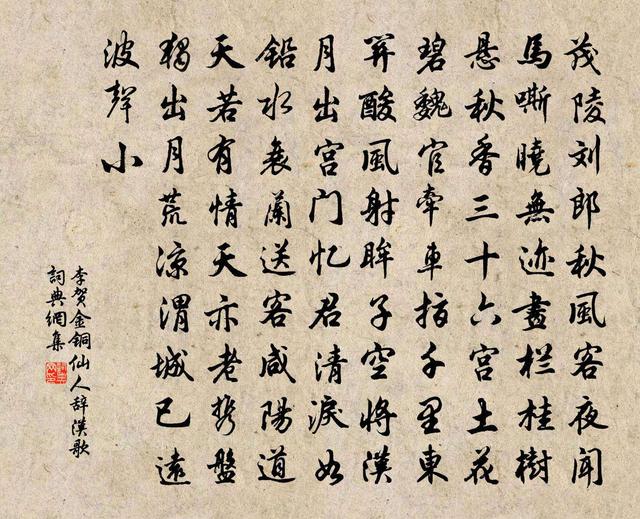 茂陵刘郎秋風客夜闻
馬嘶曉無迹畫栏桂樹
悬秋香三十六宫土花
碧魏官牵車指千里東
関酸風射眸子空将漢
月出宫门忆君清淚如
铅水衰蘭送客咸陽道
天若有情天亦老携盤
獨出月荒凉渭城已遠
波聲小
李贺金铜仙人辞漢歌
詞典網集